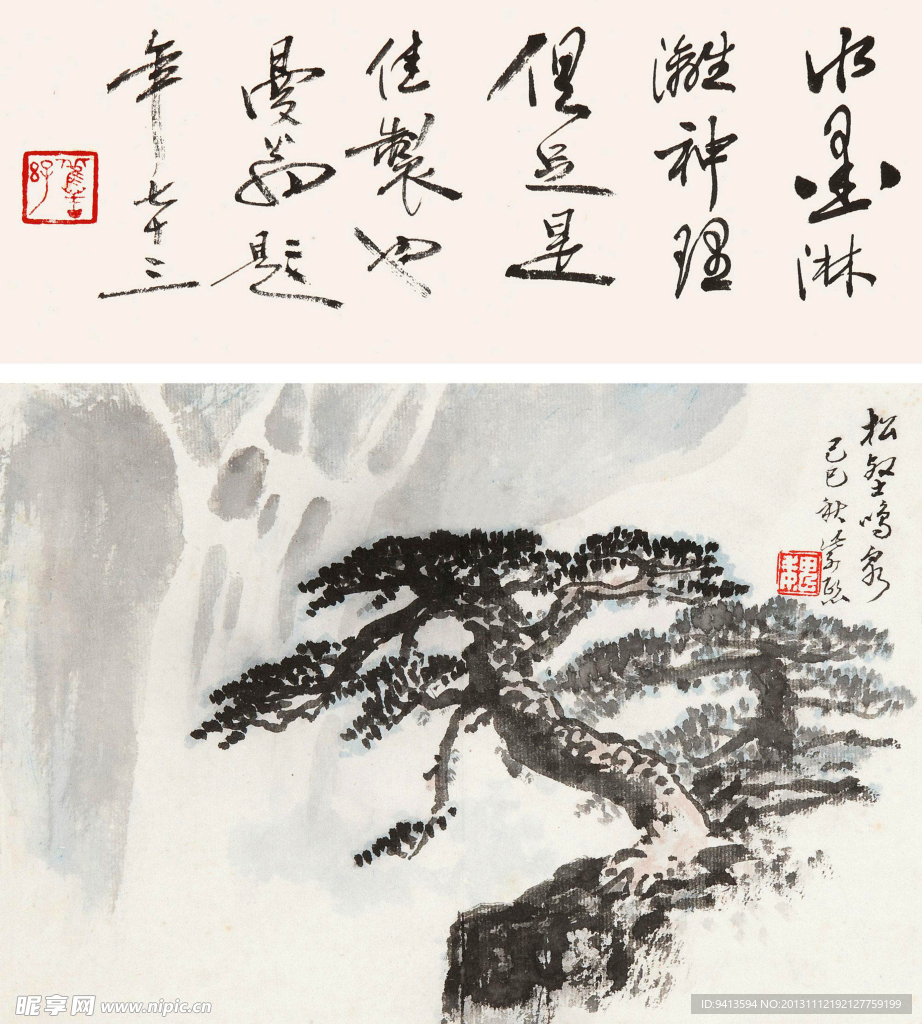 水墨淋
灕神理
俱足是
佳製也
曼翁題
年七十三
松壑鳴泉
己巳秋紫熙
魏
昵享网 www.nipic.cn
ID:9413594 NO:20131112192127759199